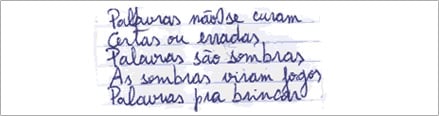 Palavras não se curam
Certas ou erradas
Palavras são sombras
As sombras viram jogos
Palavras pra brincar